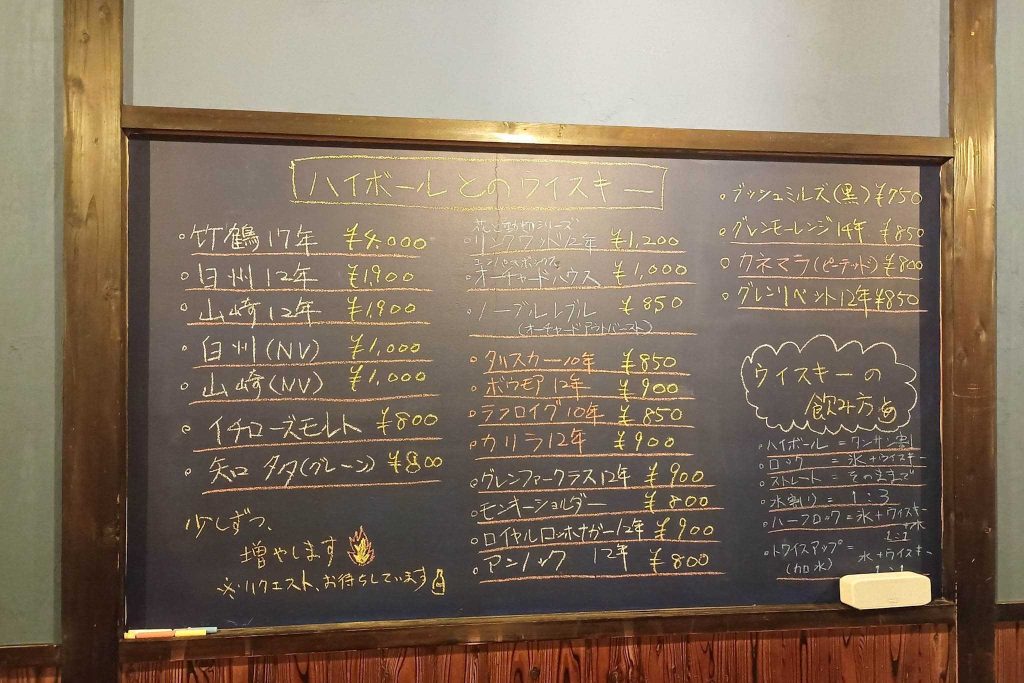 ハイボールとのウイスキー
・竹鶴17年 ¥4,000
・白州12年 ¥1,900
・山崎12年 ¥1,900
・白州(NV) ¥1,000
・山崎(NV) ¥1,000
・イチローズモルト ¥800
・知多(グレーン) ¥800
少しずつ、
増やします
※リクエスト、お待ちしています
花と動物シリーズ
・リンクウッド12年 ¥1,200
コンパスボックス
・オーチャードハウス ¥1,000
・ノーブルレブル ¥850
(オーチャードアウトバースト)
・タリスカー10年 ¥850
・ボウモア12年 ¥900
・ラフロイグ10年 ¥850
・カリラ12年 ¥900
・グレンファークラス12年 ¥900
・モンキーショルダー ¥800
・ロイヤルロッホナガー12年 ¥900
・アンノック 12年 ¥800
・ブッシュミルズ(黒) ¥750
・グレンモーレンジ14年 ¥850
・カネマラ(ピーテッド) ¥800
・グレンリベット12年 ¥850
ウイスキーの
飲み方
・ハイボール = タンサン割
・ロック = 氷+ウイスキー
・ストレート = そのままで
・水割り = 1:3
・ハーフロック = 氷+ウイスキー
+水
1:1
・トワイスアップ =
(加水) 水+ウイスキー
1:1